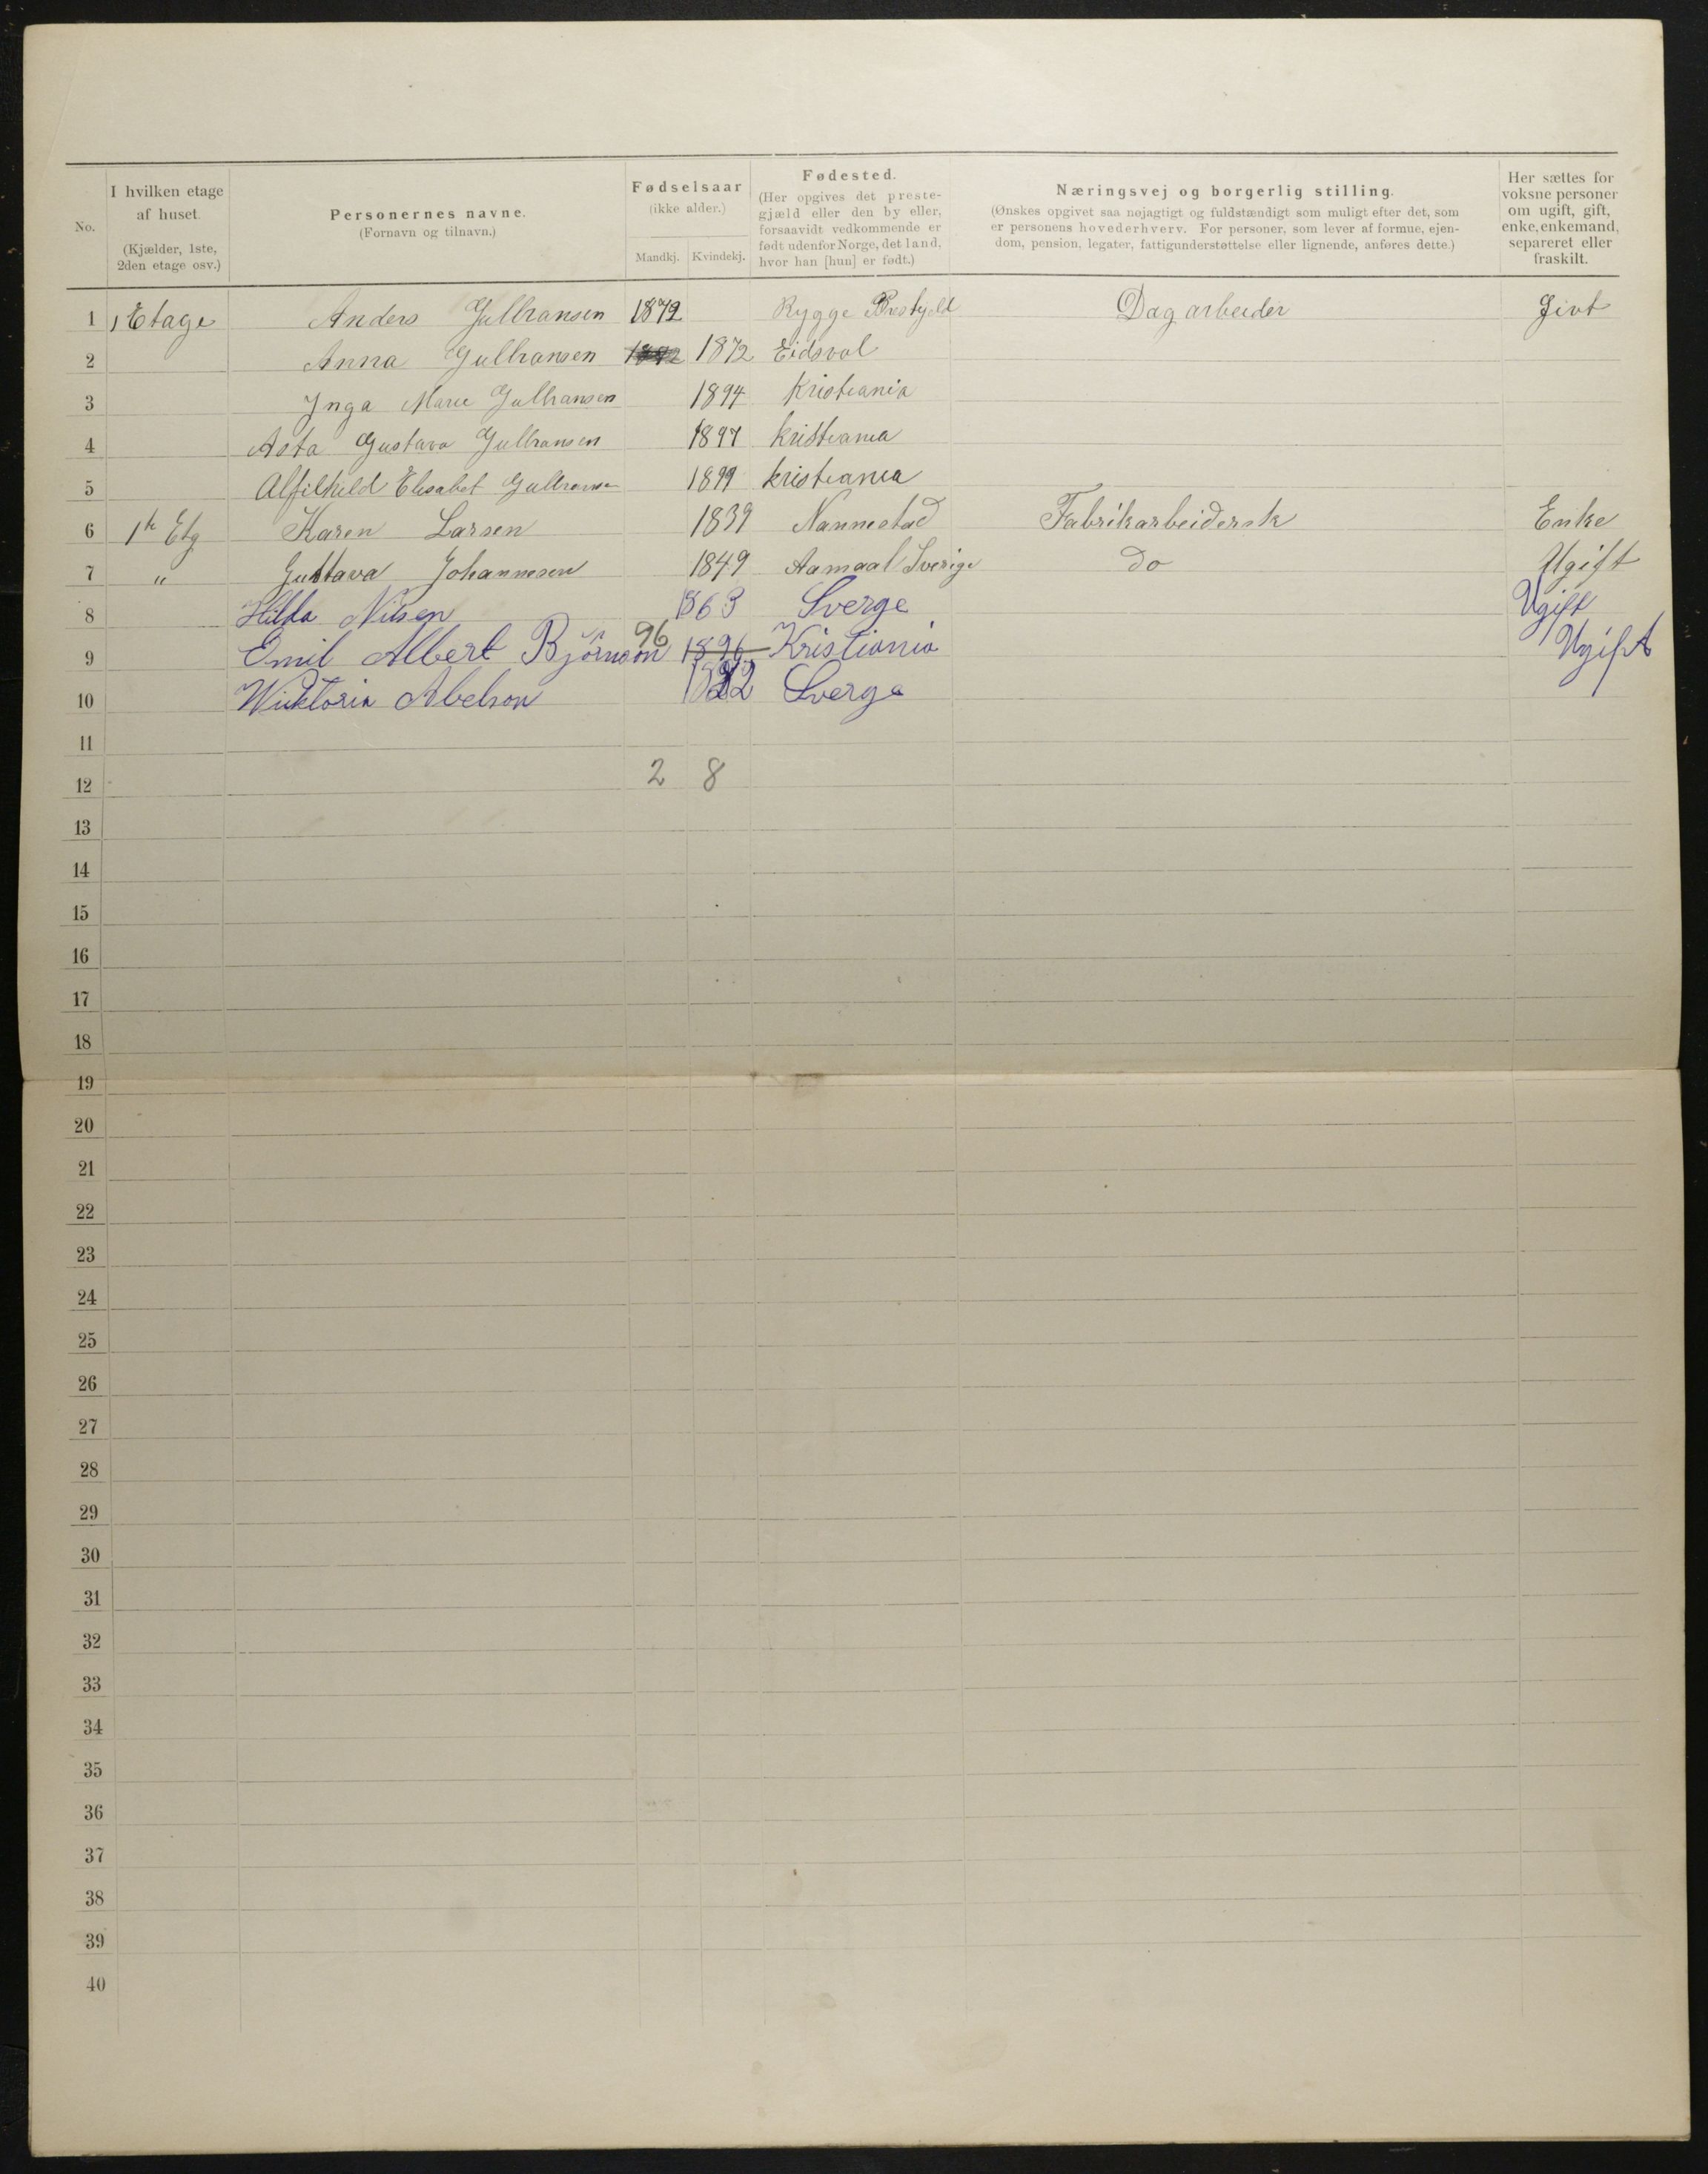 No.
I hvilken etage af huset. (Kjælder, 1ste, 2den etage osv.)
Personernes navne. (Fornavn og tilnavn.)
Fødselsaar (ikke alder.) Mandkj. Kvindekj.
Fødested. (Her opgives det prestegjæld eller den by eller, forsaavidt vedkommende er født udenfor Norge, det land, hvor han [hun] er født.)
Næringsvej og borgerlig stilling. (Ønskes opgivet saa nøjagtigt og fuldstændigt som muligt efter det, som er personens hovederhverv. For personer, som lever af formue, ejendom, pension, legater, fattigunderstøttelse eller lignende, anføres dette.)
Her sættes for voksne personer om ugift, gift, enke, enkemand, separeret eller fraskilt.
1 1 Etage Anders Gulbransen 1872 Rygge Dagarbeider Givt
2 Anna Gulbransen 1872 Eidsvol
3 Inga Marie Gulbransen 1894 Kristiania
4 Asta Gustava Gulbransen 1897 Kristiania
5 Alfilhild Elisabet Gulbransen 1899 Kristiania
6 1ste Etg Karen Larsen 1839 Nannestad Fabrikarbeidersk Enke
7 " Gustava Johannesen 1849 Aamaal Sverige Do Ugift
8 Hilda Nilsen 1863 Sverge Ugift
9 Emil Albert Björnson 96 1896 Kristiania Ugift
10 Wicktoria Abelson Sverge
11
12 2 8
13
14
15
16
17
18
19
20
21
22
23
24
25
26
27
28
29
30
31
32
33
34
35
36
37
38
39
40